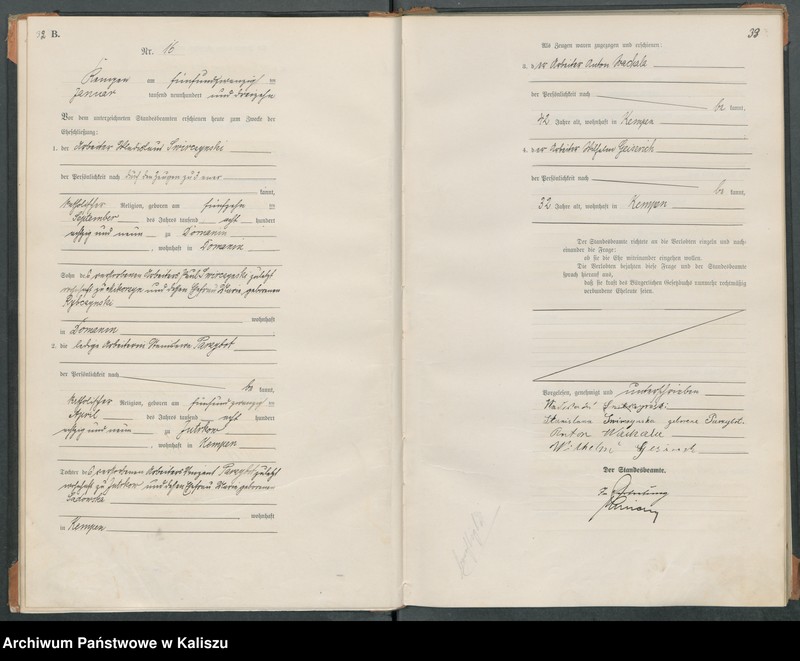 32 B.
Nr. 16
Kempen am fünfundzwanzig ten
Januar tausend neunhundert und dreizehn
Vor dem unterzeichneten Standesbeamten erschienen heute zum Zwecke der
Eheschließung:
1. der Arbeiter Wladislaus Swierczynski
der Persönlichkeit nach durch den Zeugen zu 3 aner
kannt,
katholischer Religion, geboren am fünfzehn ten
September des Jahres tausend acht hundert
achtzig und neun zu Domanin
, wohnhaft in Domanin
Sohn des verstorbenen Arbeiters Paul Swierczynski zuletzt
wohnhaft zu und dessen Ehefrau Marie geborenen
Rybczynski
wohnhaft
in Domanin
2. die ledige Arbeiterin Stanislawa
der Persönlichkeit nach
be kannt,
katholischer Religion, geboren am fünfundzwanzig ten
April des Jahres tausend acht hundert
achtzig und neun zu
, wohnhaft in Kempen
Tochter des verstorbenen Arbeiters Vinzent zuletzt
wohnhaft zu und dessen Ehefrau Marie geborenen
Sadowska
wohnhaft
in Kempen
33
Als Zeugen waren zugezogen und erschienen:
3. der Arbeiter Anton Wachala
der Persönlichkeit nach
be kannt,
42 Jahre alt, wohnhaft in Kempen
4. der Arbeiter Wilhelm
der Persönlichkeit nach
be kannt,
32 Jahre alt, wohnhaft in Kempen
Der Standesbeamte richtete an die Verlobten einzeln und nach-
einander die Frage:
ob sie die Ehe miteinander eingehen wollen.
Die Verlobten bejahten diese Frage und der Standesbeamte
sprach hierauf aus,
daß sie kraft des Bürgerlichen Gesetzbuchs nunmehr rechtmäßig
verbundene Eheleute seien.
Vorgelesen, genehmigt und unterschrieben
Stanislawa geborene
Anton Wachala
Wilhelm
Der Standesbeamte.
In Vertretung
Archiwum Państwowe w Kaliszu